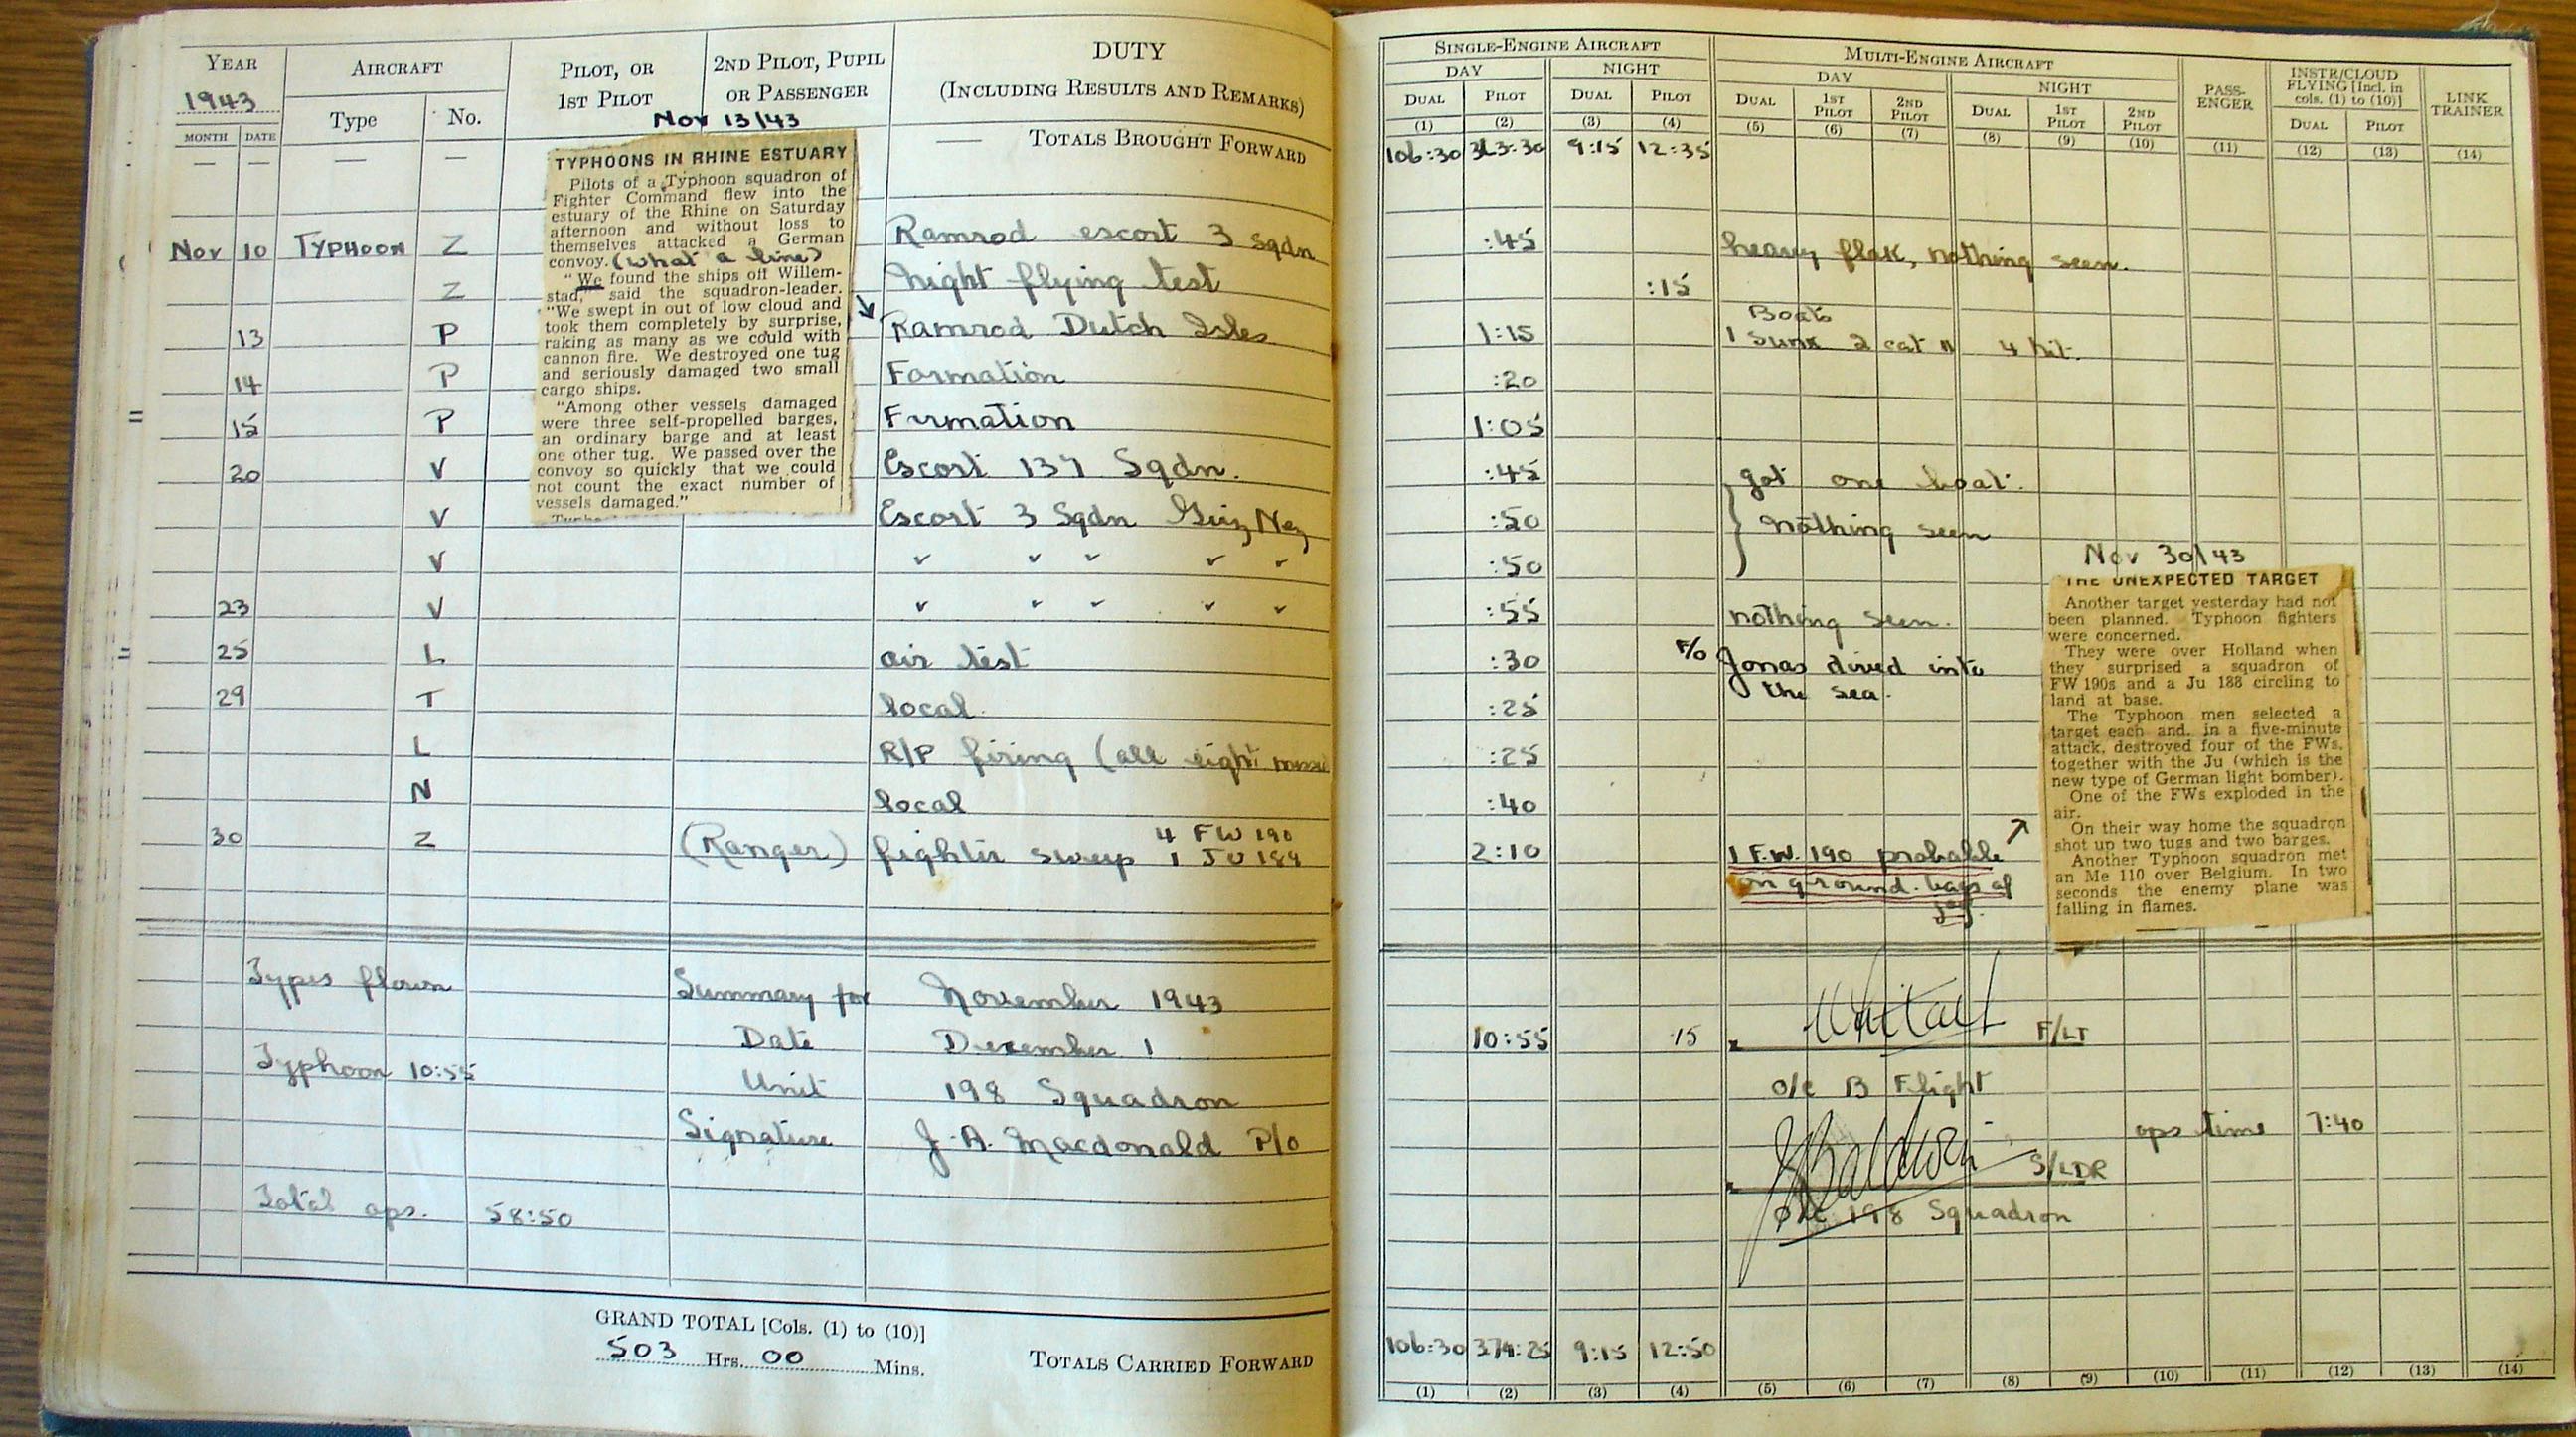 YEAR
1943
MONTH DATE
AIRCRAFT
Type No.
PILOT, OR
1ST PILOT
2ND PILOT, PUPIL
OR PASSENGER
DUTY
(INCLUDING RESULTS AND REMARKS)
— — — — — TOTALS BROUGHT FORWARD
Nov 13/43
TYPHOONS IN RHINE ESTUARY
Pilots of a Typhoon squadron of
Fighter Command flew into the
estuary of the Rhine on Saturday
afternoon and without loss to
themselves attacked a German
convoy. (what a line)
"We found the ships off Willem-
stad," said the squadron-leader.
"We swept in out of low cloud and
took them completely by surprise,
raking as many as we could with
cannon fire. We destroyed one tug
and seriously damaged two small
cargo ships.
"Among other vessels damaged
were three self-propelled barges,
an ordinary barge and at least
one other tug. We passed over the
convoy so quickly that we could
not count the exact number of
vessels damaged."
Nov 10 TYPHOON Z Ramrod escort 3 Sqdn
Z Night flying test
13 P Ramrod Dutch Isles
14 P Formation
15 P Formation
20 V Escort 137 Sqdn.
V Escort 3 Sqdn Griz Nez
V " " " " "
23 V " " " " "
25 L air test
29 T local
L R/P firing (all eight
N local
30 Z (Ranger) fighter sweep 4 FW 190
1 JU 188
Types flown Summary for November 1943
Date December 1
Typhoon 10:55 Unit 198 Squadron
Signature J. A. Macdonald P/O
Total ops. 58:50
GRAND TOTAL [Cols. (1) to (10)]
503 Hrs. 00 Mins.
TOTALS CARRIED FORWARD
SINGLE-ENGINE AIRCRAFT MULTI-ENGINE AIRCRAFT PASS-
ENGER INSTR/CLOUD
FLYING [Incl. in
cols. (1) to (10)] LINK
TRAINER
DAY NIGHT DAY NIGHT
DUAL PILOT DUAL PILOT DUAL 1ST
PILOT 2ND
PILOT DUAL 1ST
PILOT 2ND
PILOT DUAL PILOT
(1) (2) (3) (4) (5) (6) (7) (8) (9) (10) (11) (12) (13) (14)
106:30 363:30 9:15 12:35
:45 heavy flak, nothing seen.
:15
1:15 Boats
1 Sunk 2 cat II 4 hit.
:20
1:05
:45 got one boat.
:50 nothing seen
:50
:55 nothing seen.
:30 F/O Jonas dived into
the sea.
:25
:25
:40
2:10 1 F.W. 190 probable
on ground. bags of
joy.
Nov 30/43
THE UNEXPECTED TARGET
Another target yesterday had not
been planned. Typhoon fighters
were concerned.
They were over Holland when
they surprised a squadron of
FW 190s and a Ju 188 circling to
land at base.
The Typhoon men selected a
target each and, in a five-minute
attack, destroyed four of the FWs,
together with the Ju (which is the
new type of German light bomber).
One of the FWs exploded in the
air.
On their way home the squadron
shot up two tugs and two barges.
Another Typhoon squadron met
an Me 110 over Belgium. In two
seconds the enemy plane was
falling in flames.
10:55 15 F/LT
o/c B Flight
ops time 7:40
J Baldwin S/LDR
o/c 198 Squadron
106:30 374:25 9:15 12:50
(1) (2) (3) (4) (5) (6) (7) (8) (9) (10) (11) (12) (13) (14)